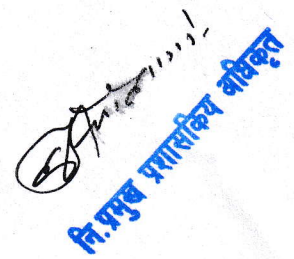 नि.प्रमुख प्रशासकिय अधिकृत